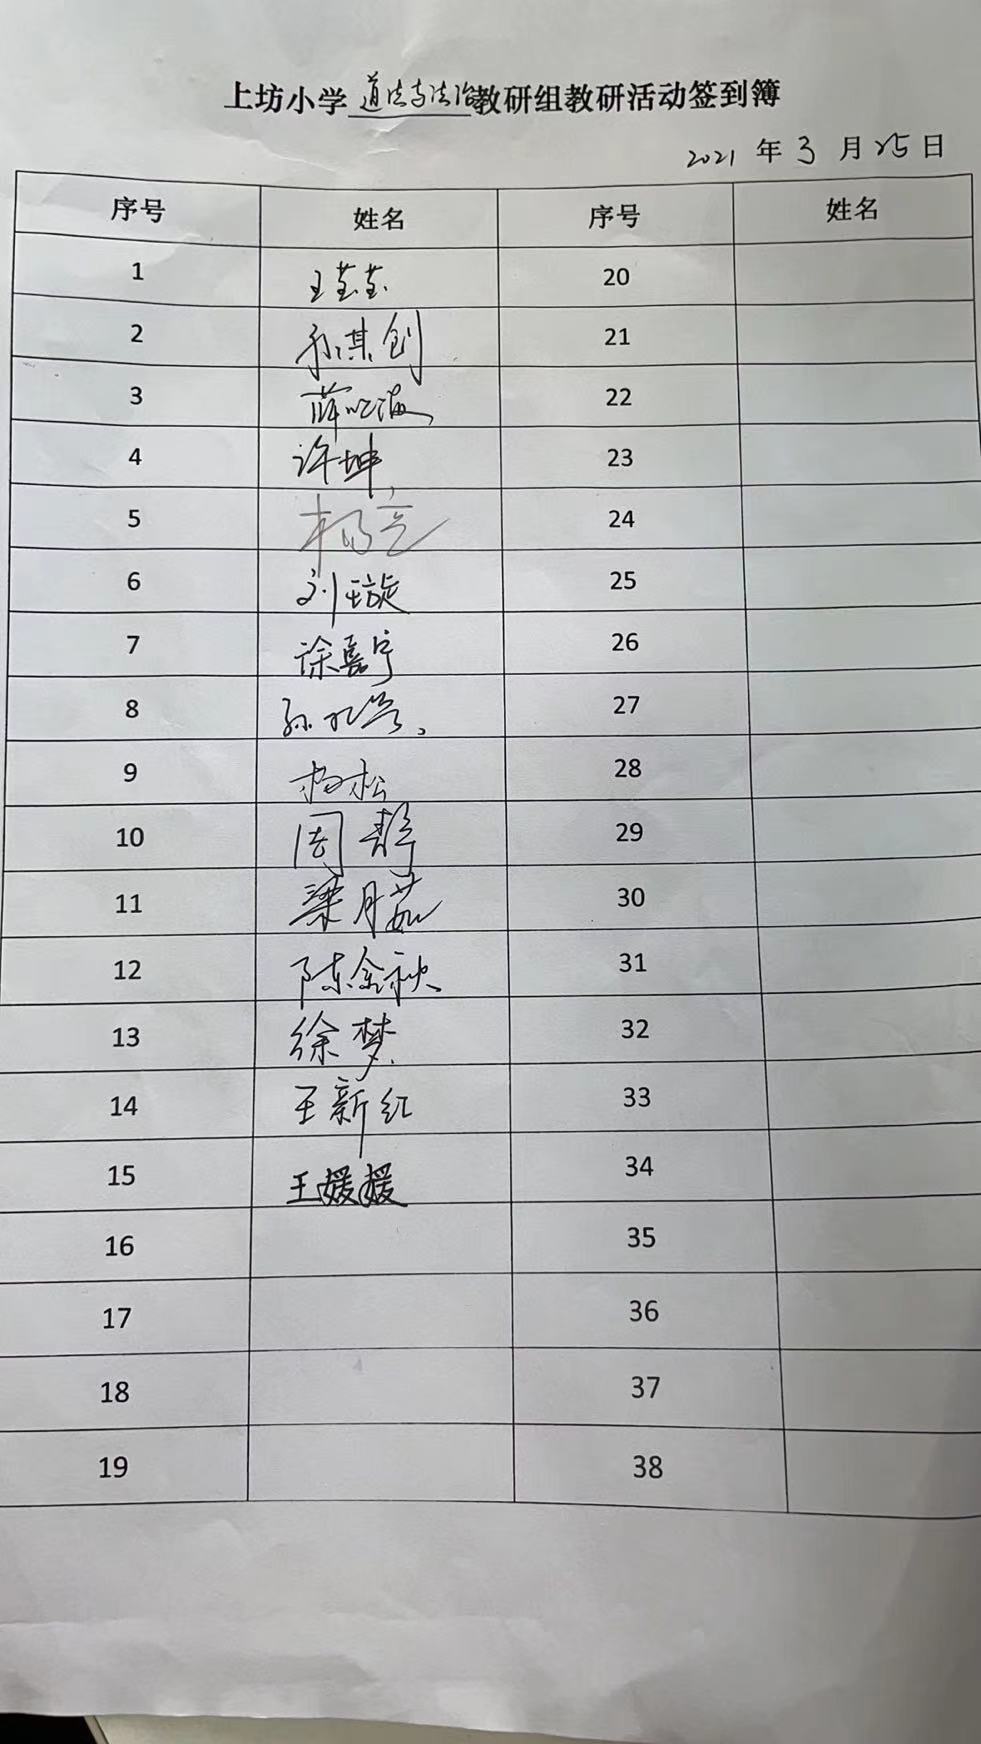 上坊小学道法与法治教研组教研活动签到簿
2021年3月25日
序号 姓名 序号 姓名
1 王莹莹 20
2 孙其创 21
3 薛 22
4 许坤 23
5 杨亮 24
6 刘璇 25
7 涂嘉宁 26
8 孙 27
9 杨松 28
10 周静 29
11 梁月茹 30
12 陈金秋 31
13 徐梦 32
14 王新红 33
15 王媛媛 34
16 35
17 36
18 37
19 38